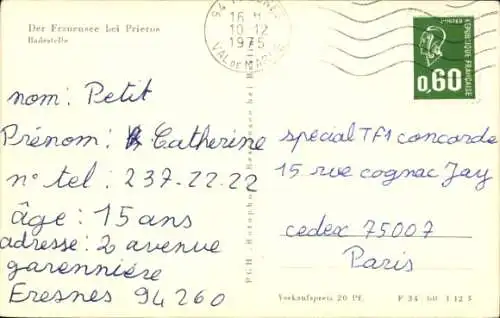 Der Frauensee bei Prieros
Badestelle
94
16 H
10-12
1975
VAL DE MARNE
REPUBLIQUE FRANÇAISE
0,60
nom: Petit
Prénom: Catherine
n° tel: 237.22.22
âge: 15 ans
adresse: 2 avenue
garennière
Fresnes 94260
special TF1 concorde
15 rue cognac Jay
cedex 75007
Paris
Verkaufspreis 20 Pf.
F 34 60 1 12 5